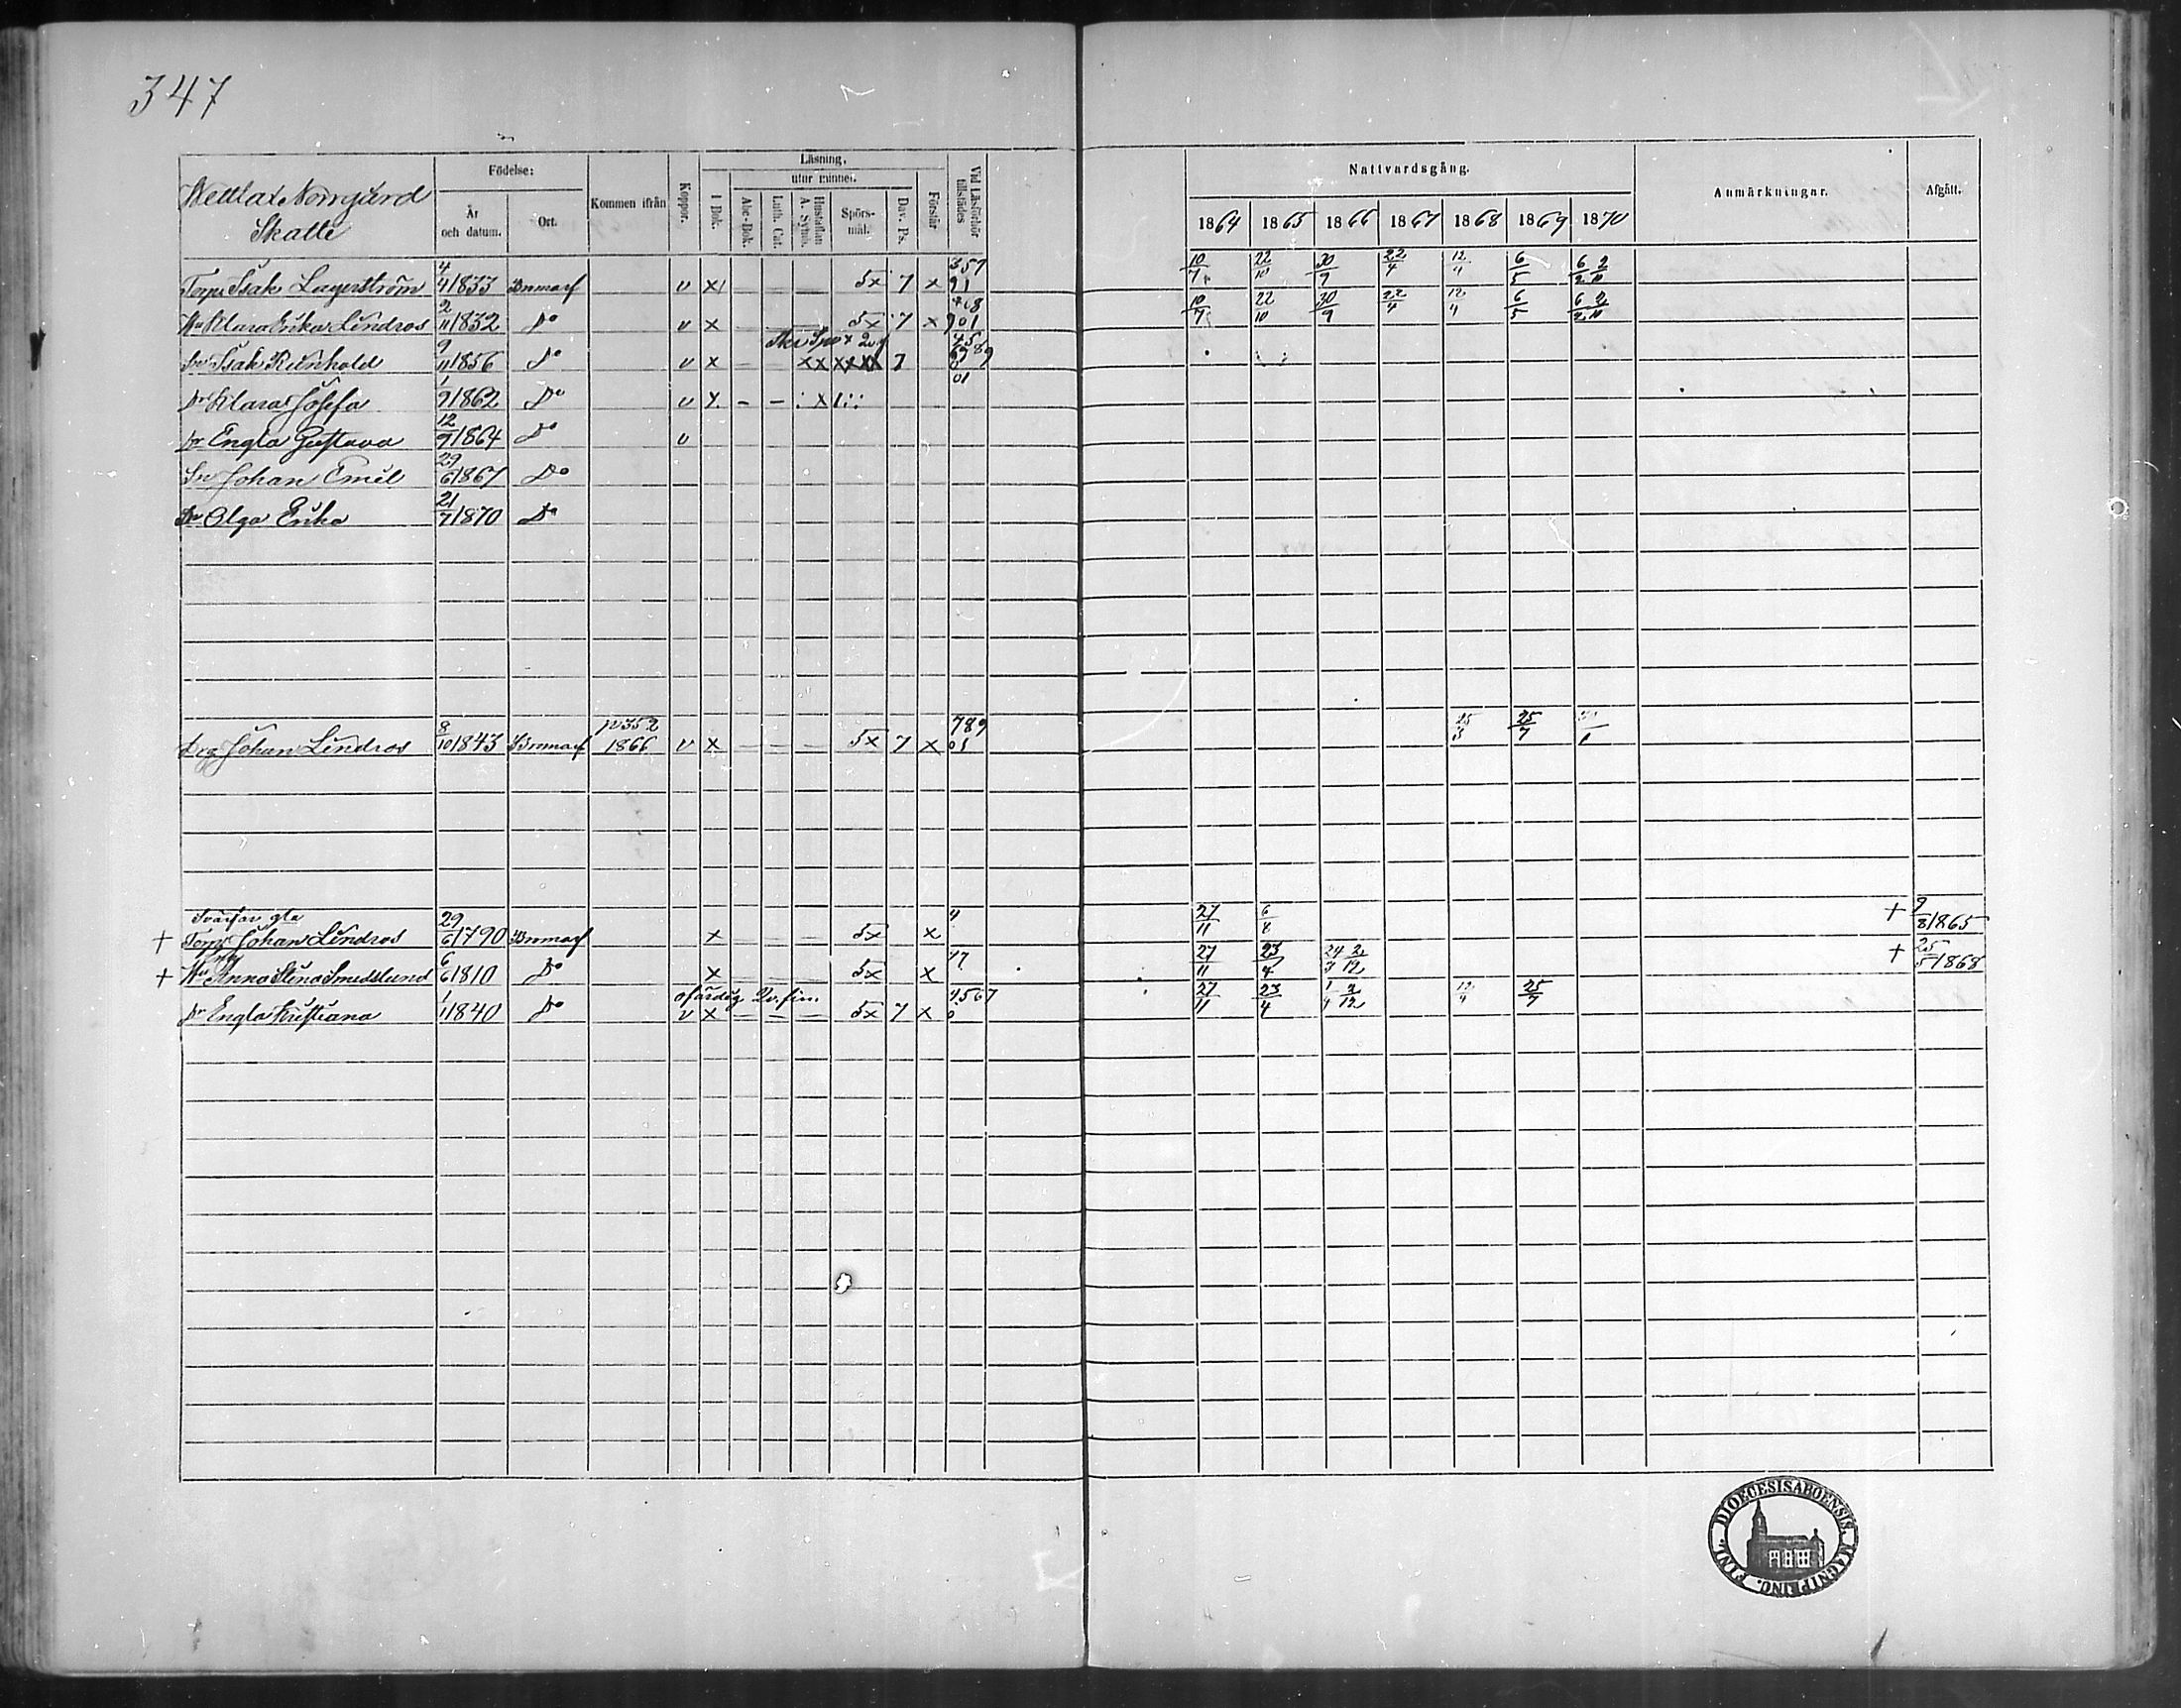 347
Födelse: Läsning. Nattvardsgång. Anmärkningar. Afgått.
utur minnet.
Norrgård
Skatte
År och datum. Ort. Kommen ifrån Koppor. I Bok. Abc-Bok. Luth. Cat. Hustaflan A. Symb. Spörsmål. Dav. Ps. Förstår Vid Läsförhör tillstädes
1864 1865 1866 1867 1868 1869 1870
Torp Isak Lagerström 4/4 1833 v x — — — 5x 7 x 10/7 22/10 30/9 22/4 12/4 6/5 6/2 2/10
Hu Klara Erika Lindros 2/11 1832 Do v x — — — 5x 7 x 10/7 22/10 30/9 22/4 12/4 6/5 6/2 2/10
Sn Isak Reinhold 9/11 1856 Do v x — — xx 7
Dr Klara Josefa 1/9 1862 Do v
Dr Engla Gustava 12/9 1864 Do v
Sn Johan Emil 29/6 1867 Do
Dr Olga Erika 21/7 1870 Do
p 352
Drg Johan Lindros 8/10 1843 1866 v x — — — 5x 7 x 789 01 25/3 25/7
Svärfar gla
+ Torp Johan Lindros 29/6 1790 x — — — 5x x 4 27/11 6/8 + 9/3 1865
+ Hu Anna Stina Smedslund 6/6 1810 Do x — — — 5x x 27/11 23/4 24/3 2/12 + 25/5 1868
ofärdig 2 v. fin.
Dr Engla Kristiana 1/1 1840 Do v x — — — 5x 7 x 4567 0 27/11 23/4 1/4 2/12 12/4 25/7
DIOECESIS ABOENSIS. MAGNI PRINC. FINL.